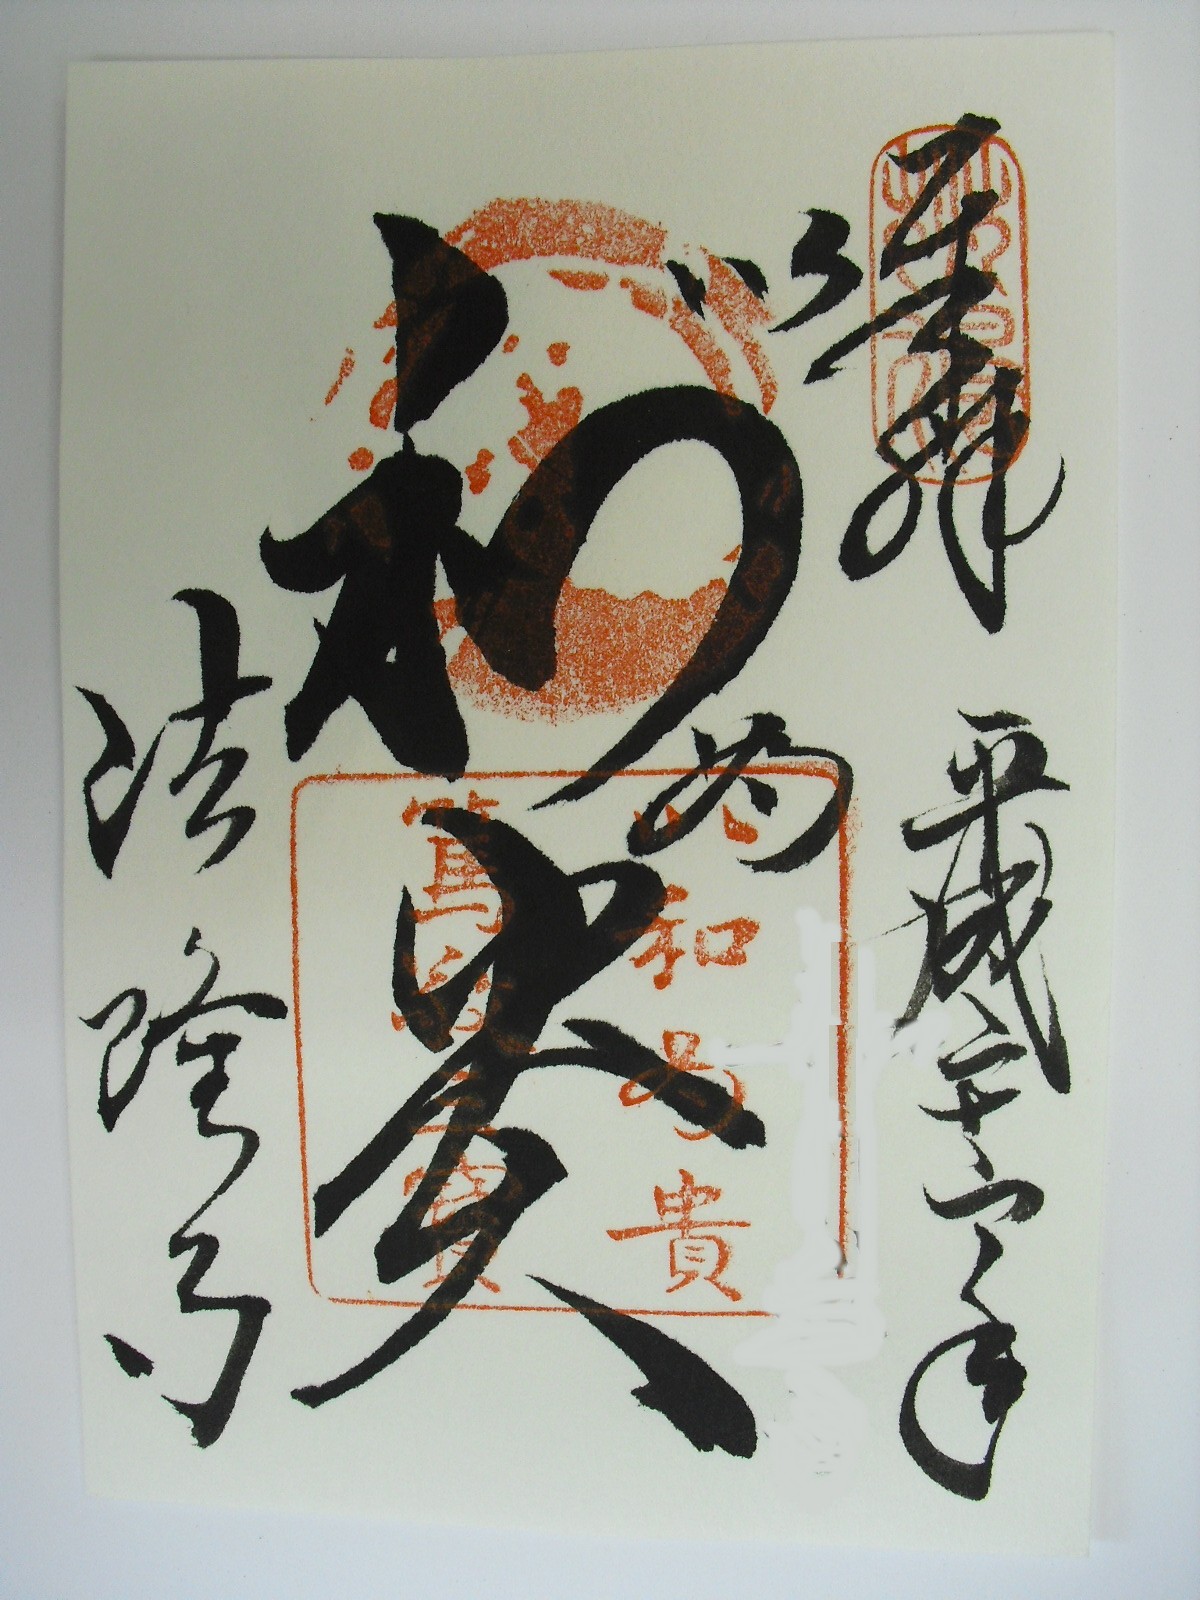 奉拝
平成二十六年
以和為貴
法隆寺
以和為貴
篤敬三寶